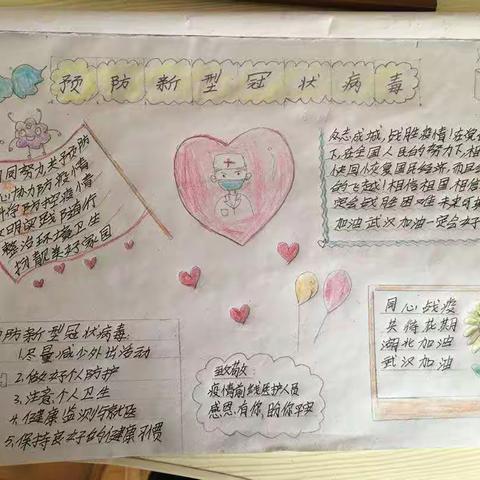 预防新型冠状病毒
同努力共预防
心协力防疫情
科学防控疫情
文明实践随行
整治环境卫生
扮靓美好家园
众志成城,战胜疫情!
下,在全国人民的努力下,相
快回恢复国民经济,而且
的飞越!相信祖国,相信
定会战胜困难,未来可
加油武汉加油一定会好
防新型冠状病毒:
1.尽量减少外出活动
2.做好个人防护
3.注意个人卫生
4.健康监测与就医
5.保持良好的健康习惯
致敬:
疫情前线医护人员
感恩,有你,盼你平安
同心战疫
共待花期
湖北加油
武汉加油